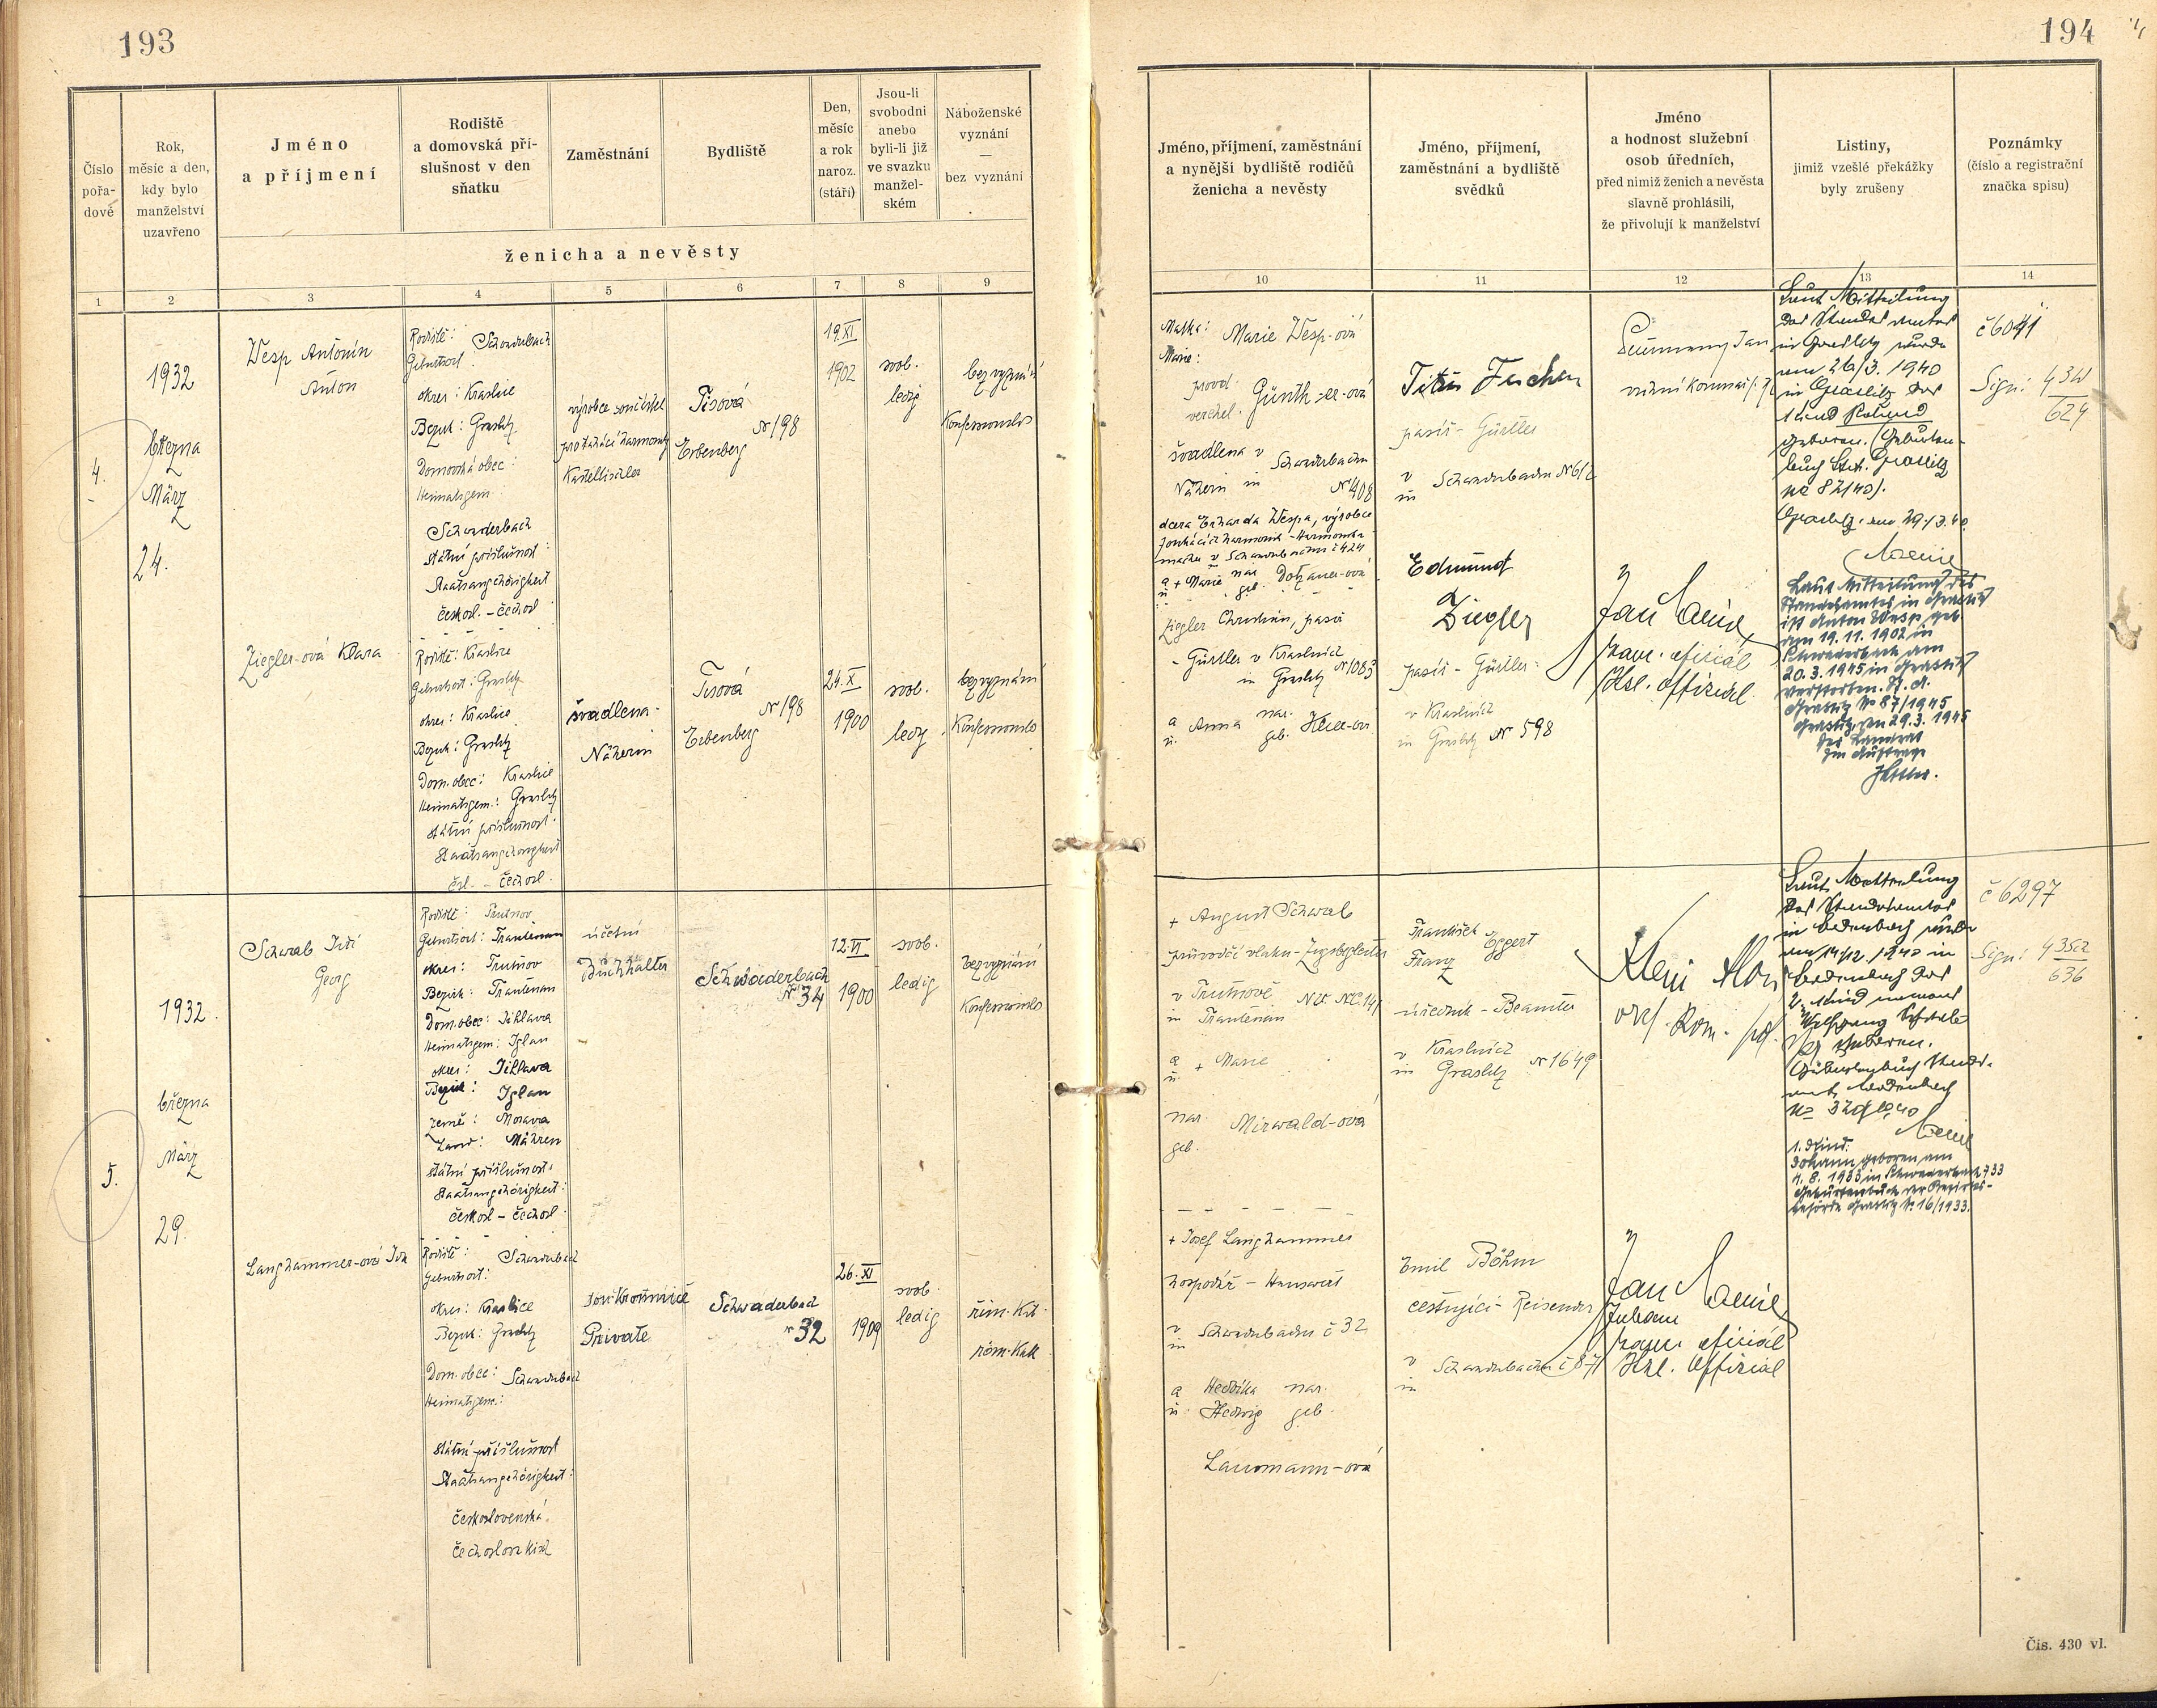 193
194
Číslo
pořa-
dové
Rok,
měsíc a den,
kdy bylo
manželství
uzavřeno
Jméno
a příjmení
Rodiště
a domovská pří-
slušnost v den
sňatku
Zaměstnání
Bydliště
Den,
měsíc
a rok
naroz.
(stáří)
Jsou-li
svobodni
anebo
byli-li již
ve svazku
manžel-
ském
Náboženské
vyznání
—
bez vyznání
ženicha a nevěsty
1
2
3
4
5
6
7
8
9
4.
1932
března
März
24.
Wesp Antonín
Anton
Rodiště: Schwaderbach
Geburtsort
okres: Kraslice
Bezirk: Graslitz
Domovská obec:
Heimatsgem.
Schwaderbach
Státní příslušnost:
Staatsangehörigkeit
českosl. – čechosl.
výrobce součástek
pro tahací harmoniky
Tisová
N 198
Erbenberg
19.XI
1902
svob.
ledig
bez vyznání
Konfessionslos
Ziegler-ová Klara
Rodiště: Kraslice
Geburtsort: Graslitz
okres: Kraslice
Bezirk: Graslitz
Dom. obec: Kraslice
Heimatsgem.: Graslitz
Státní příslušnost:
Staatsangehörigkeit
čsl. – čechosl.
švadlena –
Näherin
Tisová
N 198
Erbenberg
24.X
1900
svob.
ledig
bez vyznání
Konfessionslos
5.
1932.
března
März
29.
Schwab Jiří
Georg
Rodiště: Trutnov
Geburtsort: Trautenau
okres: Trutnov
Bezirk: Trautenau
Dom. obec: Jihlava
Heimatsgem: Iglau
okres: Jihlava
Bezirk: Iglau
země: Morava
Land: Mähren
Státní příslušnost:
Staatsangehörigkeit:
českosl – čechosl.
účetní
Buchhalter
Schwaderbach
N 34
12.VI
1900
svob.
ledig
bez vyznání
Konfessionslos
Langhammer-ová Ida
Rodiště: Schwaderbach
Geburtsort:
okres: Kraslice
Bezirk: Graslitz
Dom. obec: Schwaderbach
Heimatsgem.:
Státní příslušnost
Staatsangehörigkeit:
československá.
čechoslovakisch
soukromnice
Private
Schwaderbach
N 32
26.XI
1909
svob.
ledig
řím. kat.
röm. Kath
Jméno, příjmení, zaměstnání
a nynější bydliště rodičů
ženicha a nevěsty
Jméno, příjmení,
zaměstnání a bydliště
svědků
Jméno
a hodnost služební
osob úředních,
před nimiž ženich a nevěsta
slavně prohlásili,
že přivolují k manželství
Listiny,
jimiž vzešlé překážky
byly zrušeny
Poznámky
(číslo a registrační
značka spisu)
10
11
12
13
14
Matka: Marie Wesp-ová
provd.
verehel. Günth-er-ová
švadlena v Schwaderbachu
Näherin in N 408
dcera Erharda Wespa, výrobce
a + Marie nar.
u. geb. Dotzauer-ová
Ziegler Christian, pasíř
– Gürtler v Kraslicích
in Graslitz N 1083
a Anna nar.
u. geb.
pasíř – Gürtler
v Schwaderbachu N 612
in
Edmund
Ziegler
pasíř – Gürtler
v Kraslicích
in Graslitz N 598
Jan
kanc. oficiál
Kzl. Offizial
Laut Mitteilung
des Standesamtes
in Graslitz wurde
am 26/3. 1940
in Graslitz das
1 Kind Roland
geboren. (Geburten-
buch St.A. Graslitz
No 82/40).
Graslitz, am 29./3. 40
Laut Mitteilung des
Standesamtes in Graslitz
ist Anton Wesp geb.
am 19. 11. 1902 in
Schwaderbach am
20. 3. 1945 in Graslitz
verstorben. St. A.
Graslitz No 87/1945
Graslitz, am 29. 3. 1945
Der Landrat
Im Auftrage
č 6041
Sign: 4 3W
624
+ August Schwab
průvodčí vlaku – Zugsbegleiter
v Trutnově
in Trautenau
a + Marie
u.
nar. Mirwald-ová
geb.
+ Josef Langhammer
hospodář – Hauswirt
v Schwaderbachu č 32
in
a Hedvika nar.
u. Hedwig geb.
Lausmann-ová
František
Franz Eggert
úředník – Beamter
v Kraslicích
in Graslitz N 1649
Emil Böhm
cestující – Reisender
v Schwaderbachu č 87
in
Jan
Johann
kanc. oficiál
Kzl. Offizial
Laut Mitteilung
des Standesamtes
in Bodenbach wurde
am 14/12. 1940 in
Bodenbach das
2. Kind namens
Wolfgang
geboren.
Geburtenbuch Standes-
amt Bodenbach
1. Kind:
Johann geboren am
1. 8. 1933 in Schwaderbach 433
Geburtenbuch der Bezirks-
behörde Graslitz No 16/1933.
č 6297
Sign: 4 35a
636
Čís. 430 vl.